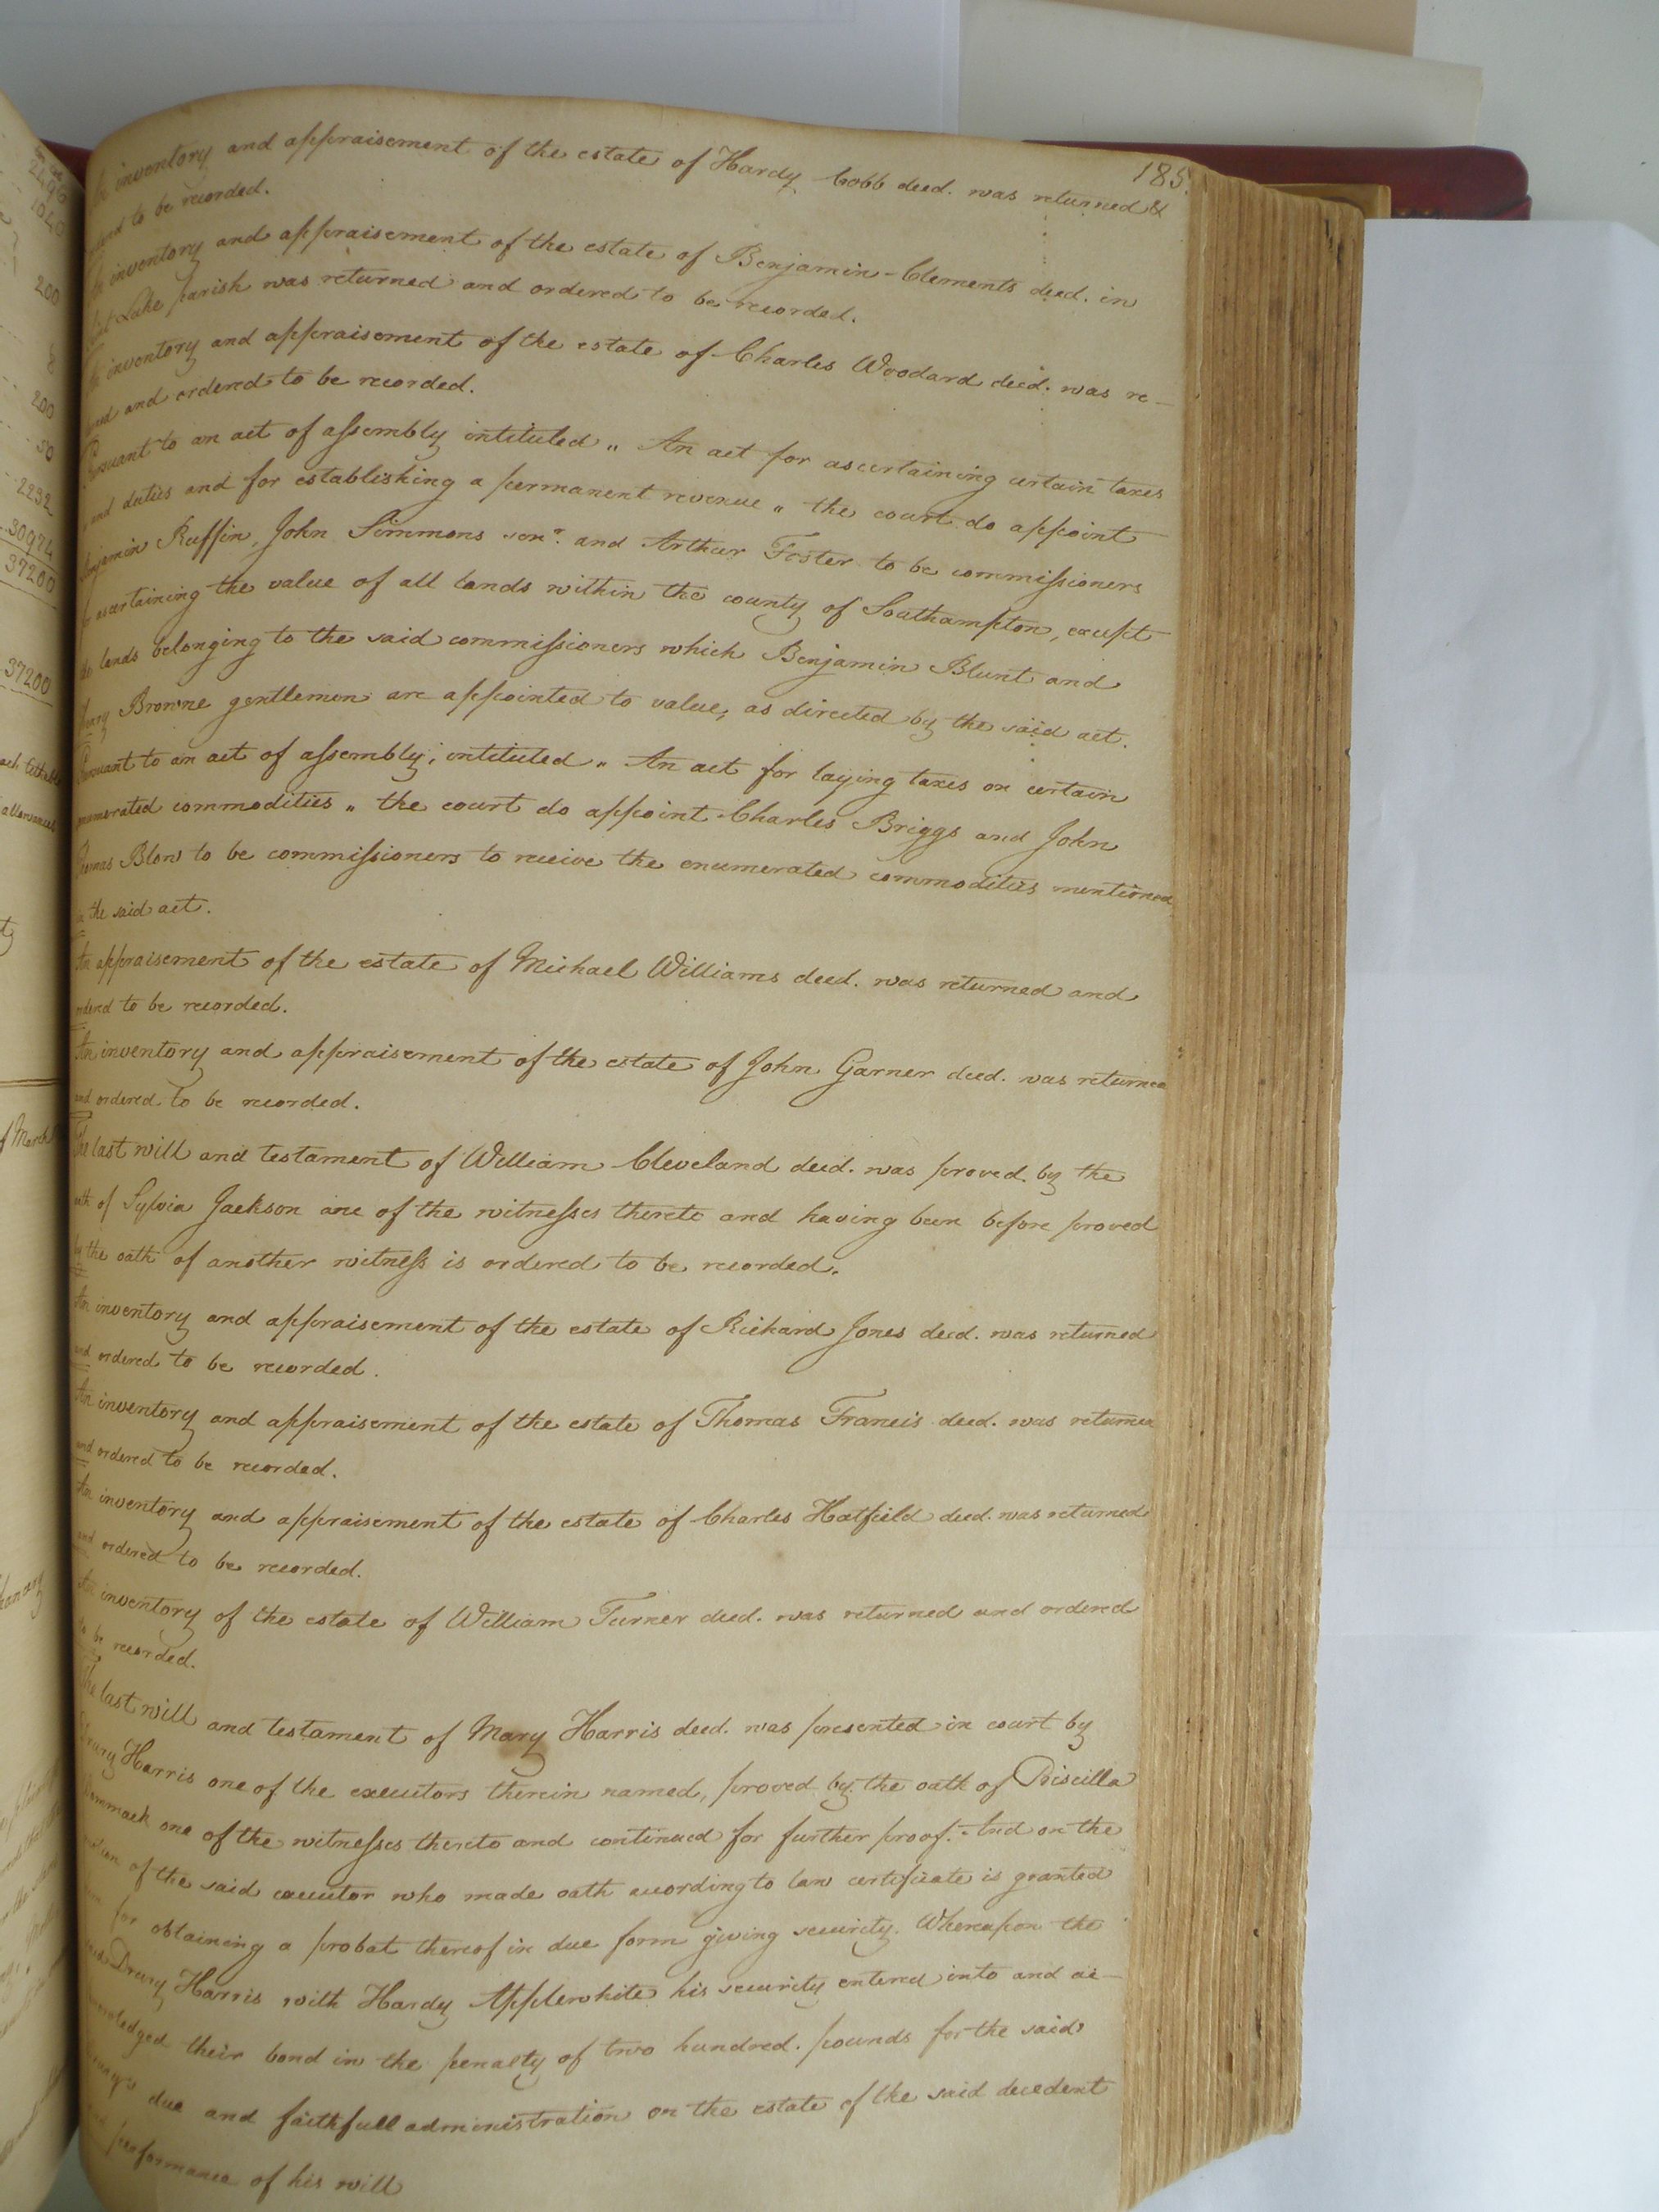 185.
inventory and appraisement of the estate of Hardy Cobb deed. was returned &
to be recorded.
inventory and appraisement of the estate of Benjamin Clements deed. in
Luke parish was returned and ordered to be recorded.
inventory and appraisement of the estate of Charles Woodard deed. was re-
and ordered to be recorded.
Pursuant to an act of assembly intituled " An act for ascertaining certain taxes
and duties and for establishing a permanent revenue " the court do appoint
Benjamin Ruffin, John Simmons senr. and Arthur Foster to be commissioners
ascertaining the value of all lands within the county of Southampton, except
the lands belonging to the said commissioners which Benjamin Blunt and
Browne gentlemen are appointed to value, as directed by the said act.
Pursuant to an act of assembly, intituled " An act for laying taxes on certain
enumerated commodities " the court do appoint Charles Briggs and John
Thomas Blow to be commissioners to receive the enumerated commodities mentioned
in the said act.
An appraisement of the estate of Michael Williams deed. was returned and
ordered to be recorded.
An inventory and appraisement of the estate of John Garner deed. was returned
and ordered to be recorded.
The last will and testament of William Cleveland deed. was proved by the
oath of Sylvia Jackson one of the witnesses thereto and having been before proved
by the oath of another witness is ordered to be recorded.
An inventory and appraisement of the estate of Richard Jones deed. was returned
and ordered to be recorded.
An inventory and appraisement of the estate of Thomas Francis deed. was returned
and ordered to be recorded.
An inventory and appraisement of the estate of Charles Hatfield deed. was returned
and ordered to be recorded.
An inventory of the estate of William Turner deed. was returned and ordered
to be recorded.
The last will and testament of Mary Harris deed. was presented in court by
Drury Harris one of the executors therein named, proved by the oath of Priscilla
one of the witnesses thereto and continued for further proof. And on the
of the said executor who made oath according to law certificate is granted
for obtaining a probat thereof in due form giving security. Whereupon the
said Drury Harris with Hardy Applewhite his security entered into and ac-
knowledged their bond in the penalty of two hundred pounds for the said
due and faithfull administration on the estate of the said decedent
and performance of his will